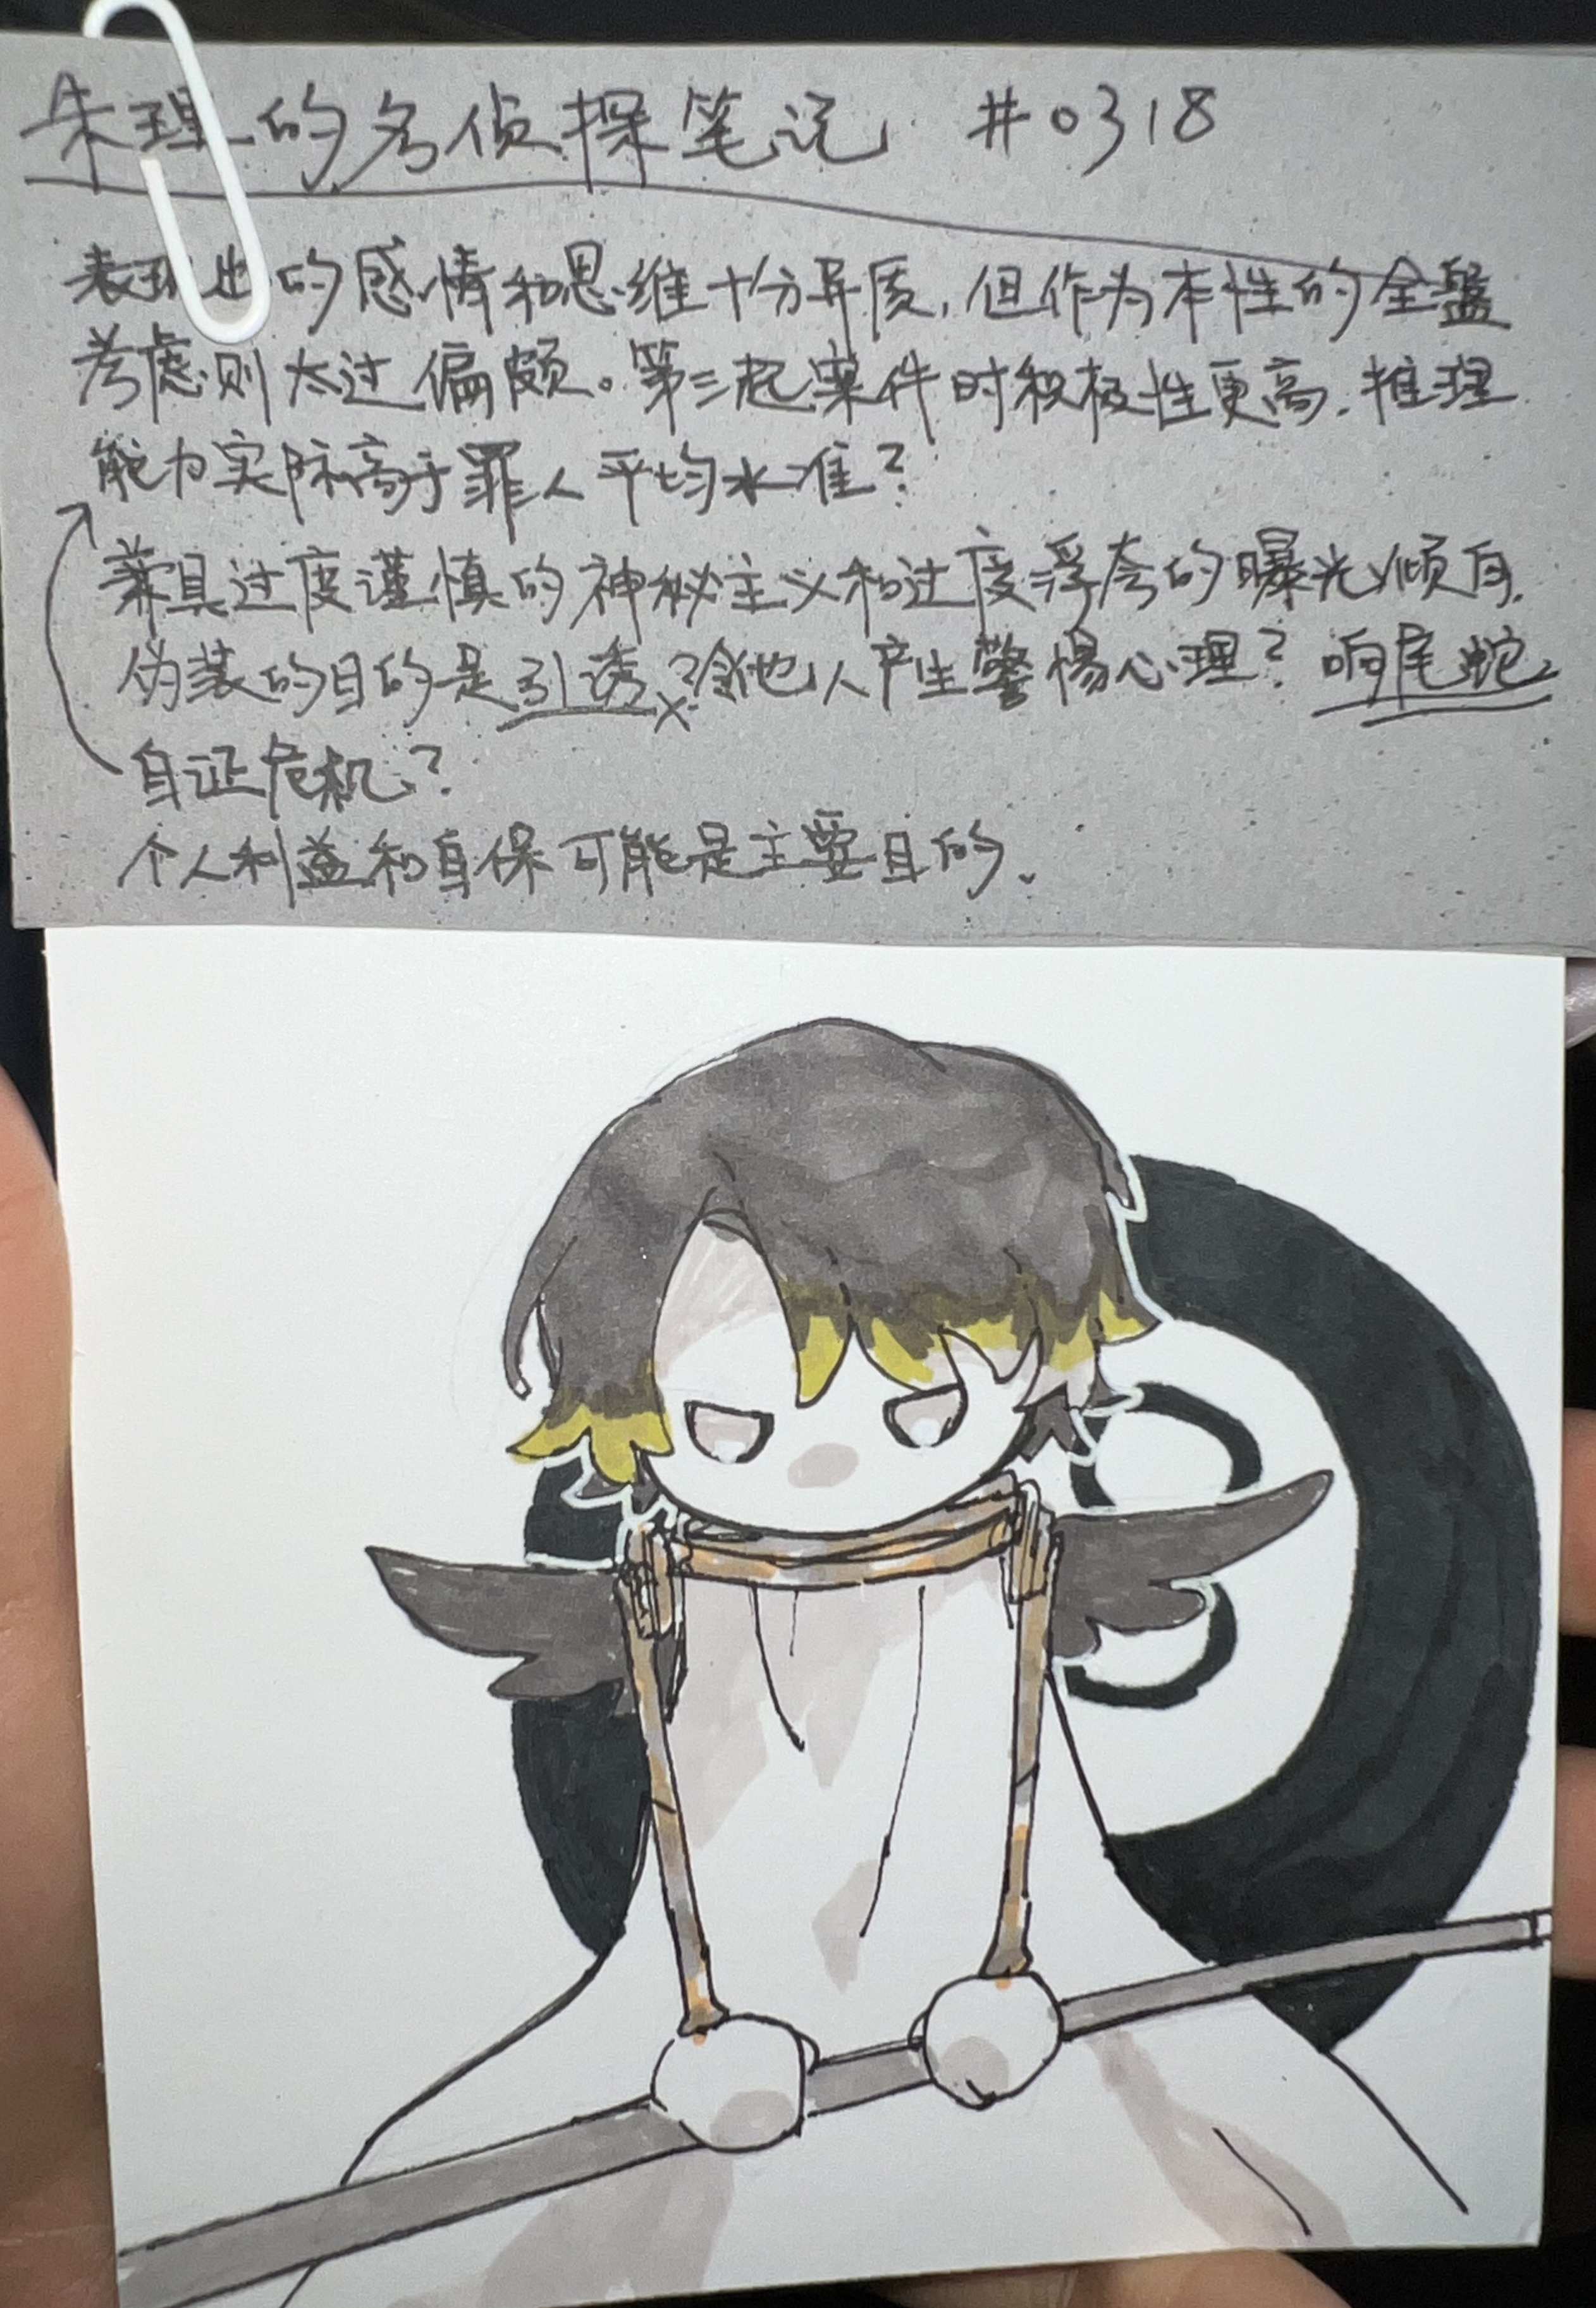 朱理的名侦探笔记 #0318
表现出的感情和思维十分异质，但作为本性的全盤
考虑则太过偏颇。第三起案件时积极性更高，推理
能力实际高于罪人平均水准？
兼具过度谨慎的神秘主义和过度浮夸的曝光倾向，
伪装的目的是引诱？令他人产生警惕心理？响尾蛇
自证危机？
个人利益和自保可能是主要目的、